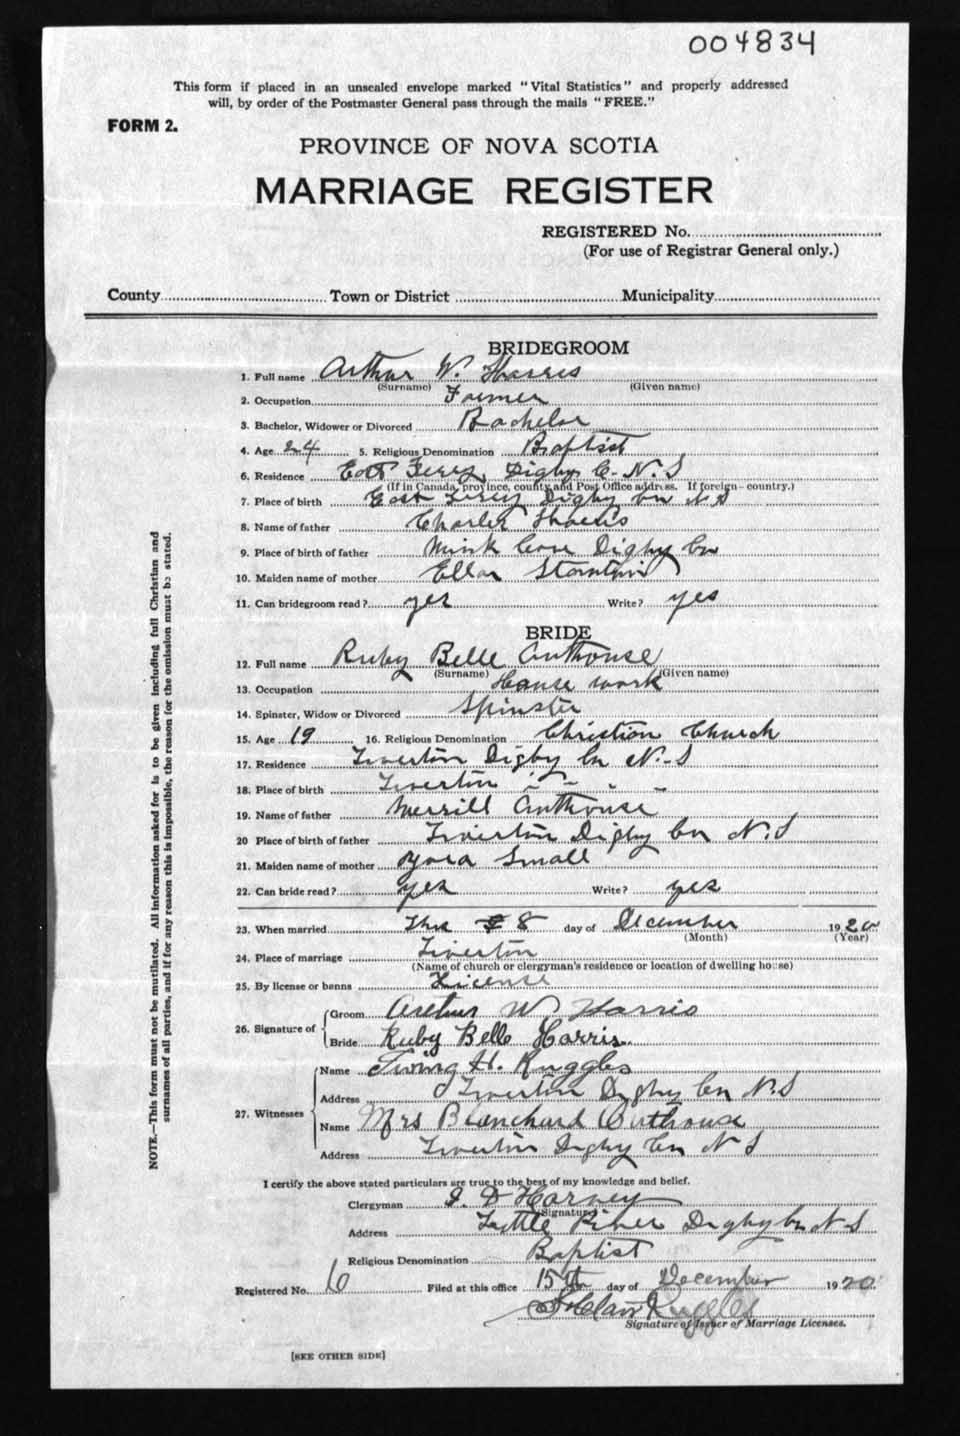 004834
This form if placed in an unsealed envelope marked "Vital Statistics" and properly addressed
will, by order of the Postmaster General pass through the mails "FREE."
FORM 2.
PROVINCE OF NOVA SCOTIA
MARRIAGE REGISTER
REGISTERED No.
(For use of Registrar General only.)
County Town or District Municipality
BRIDEGROOM
1. Full name Arthur W. Harris
(Surname) (Given name)
2. Occupation Farmer
3. Bachelor, Widower or Divorced Bachelor
4. Age 24 5. Religious Denomination Baptist
6. Residence East Ferry Digby C. N. S
(If in Canada, province, county and Post Office address. If foreign - country.)
7. Place of birth East Ferry Digby Co N S
8. Name of father Charles Harris
9. Place of birth of father Mink Cove Digby Co
10. Maiden name of mother Ella
11. Can bridegroom read? yes Write? yes
BRIDE
12. Full name Ruby Belle Outhouse
(Surname) (Given name)
13. Occupation House work
14. Spinster, Widow or Divorced Spinster
15. Age 19 16. Religious Denomination Christian Church
17. Residence Tiverton Digby Co N. S
18. Place of birth Tiverton " " " "
19. Name of father Merrill Outhouse
20 Place of birth of father Tiverton Digby Co N. S
21. Maiden name of mother Small
22. Can bride read? yes Write? yes
23. When married The 8 day of December 1920
(Month) (Year)
24. Place of marriage Tiverton
(Name of church or clergyman's residence or location of dwelling house)
25. By license or banns License
26. Signature of Groom Arthur W Harris
Bride Ruby Belle Harris
27. Witnesses Name Irving H. Ruggles
Address Tiverton Digby Co N. S
Name Mrs Blanchard Outhouse
Address Tiverton Digby Co N S
I certify the above stated particulars are true to the best of my knowledge and belief.
Clergyman Harvey
(Signature)
Address Little River Digby Co N S
Religious Denomination Baptist
Registered No. 6 Filed at this office 15th day of December 1920
Ruggles
Signature of Issuer of Marriage Licenses.
[SEE OTHER SIDE]
NOTE.—This form must not be mutilated. All information asked for is to be given including full Christian and
surnames of all parties, and if for any reason this is impossible, the reason for the omission must be stated.